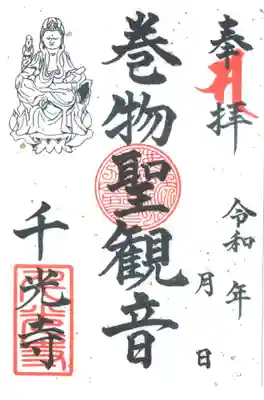 奉拝
令和　年
月　日
巻物聖観音
千光寺